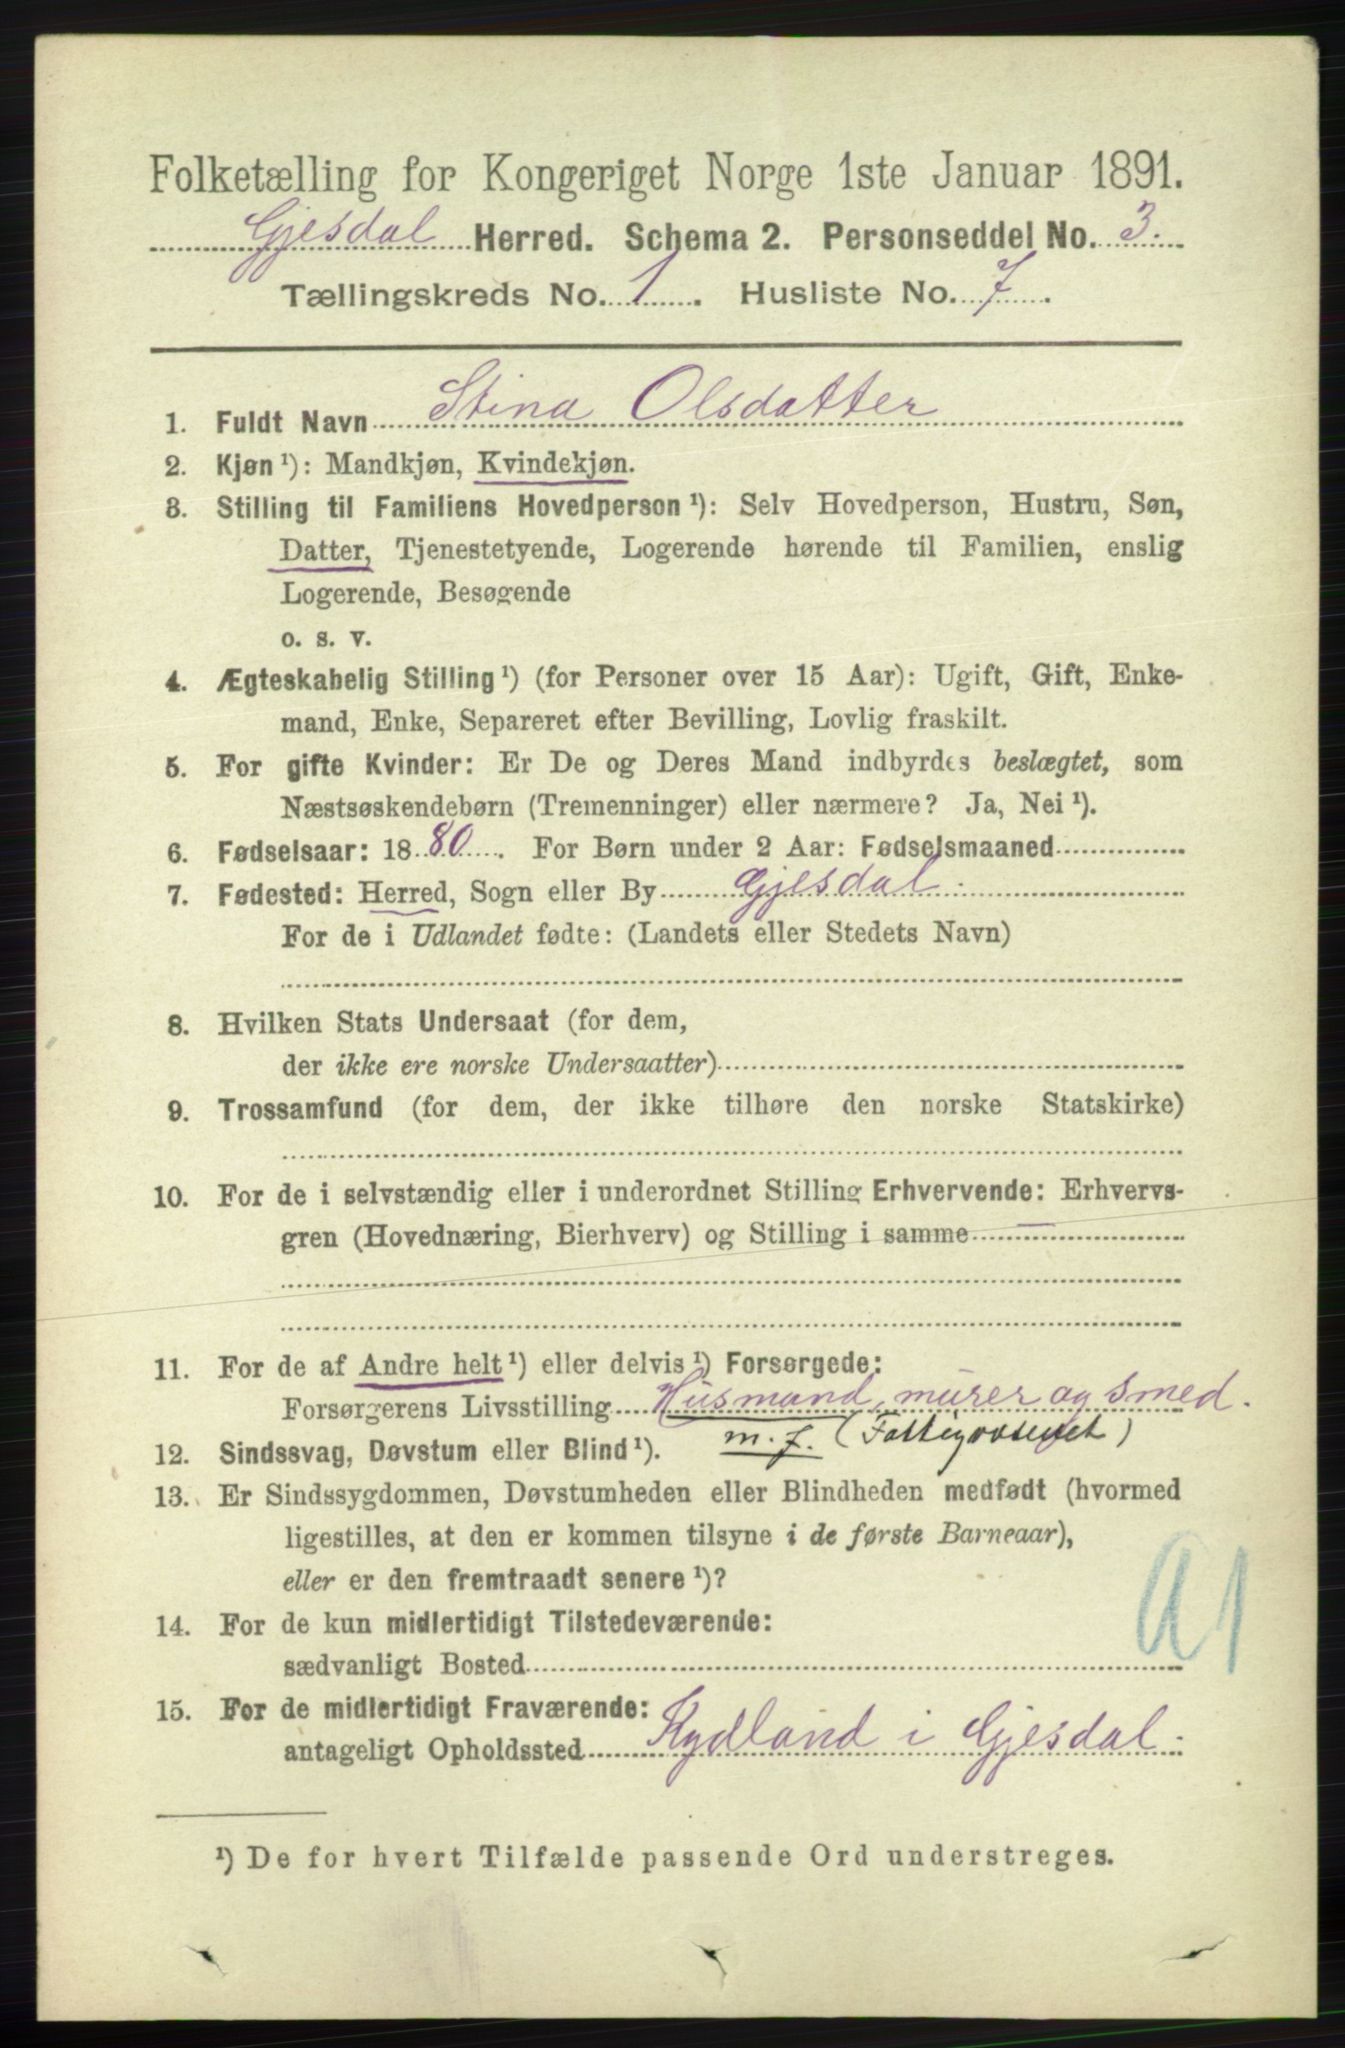 Folketælling for Kongeriget Norge 1ste Januar 1891.
Gjesdal Herred. Schema 2. Personseddel No. 3.
Tællingskreds No. 1. Husliste No. 7.
1. Fuldt Navn Stina Olsdatter
2. Kjøn ¹): Mandkjøn, Kvindekjøn.
3. Stilling til Familiens Hovedperson ¹): Selv Hovedperson, Hustru, Søn,
Datter, Tjenestetyende, Logerende hørende til Familien, enslig
Logerende, Besøgende
o. s. v.
4. Ægteskabelig Stilling ¹) (for Personer over 15 Aar): Ugift, Gift, Enke-
mand, Enke, Separeret efter Bevilling, Lovlig fraskilt.
5. For gifte Kvinder: Er De og Deres Mand indbyrdes beslægtet, som
Næstsøskendebørn (Tremenninger) eller nærmere? Ja, Nei ¹).
6. Fødselsaar: 1880. For Børn under 2 Aar: Fødselsmaaned
7. Fødested: Herred, Sogn eller By Gjesdal.
For de i Udlandet fødte: (Landets eller Stedets Navn)
8. Hvilken Stats Undersaat (for dem,
der ikke ere norske Undersaatter)
9. Trossamfund (for dem, der ikke tilhøre den norske Statskirke)
10. For de i selvstændig eller i underordnet Stilling Erhvervende: Erhvervs-
gren (Hovednæring, Bierhverv) og Stilling i samme —
11. For de af Andre helt ¹) eller delvis ¹) Forsørgede:
Forsørgerens Livsstilling Husmand, murer og smed.
m. j. (
)
12. Sindssvag, Døvstum eller Blind ¹).
13. Er Sindssygdommen, Døvstumheden eller Blindheden medfødt (hvormed
ligestilles, at den er kommen tilsyne i de første Barneaar),
eller er den fremtraadt senere ¹)?
14. For de kun midlertidigt Tilstedeværende:
sædvanligt Bosted
a1
15. For de midlertidigt Fraværende:
antageligt Opholdssted Kydland i Gjesdal.
¹) De for hvert Tilfælde passende Ord understreges.